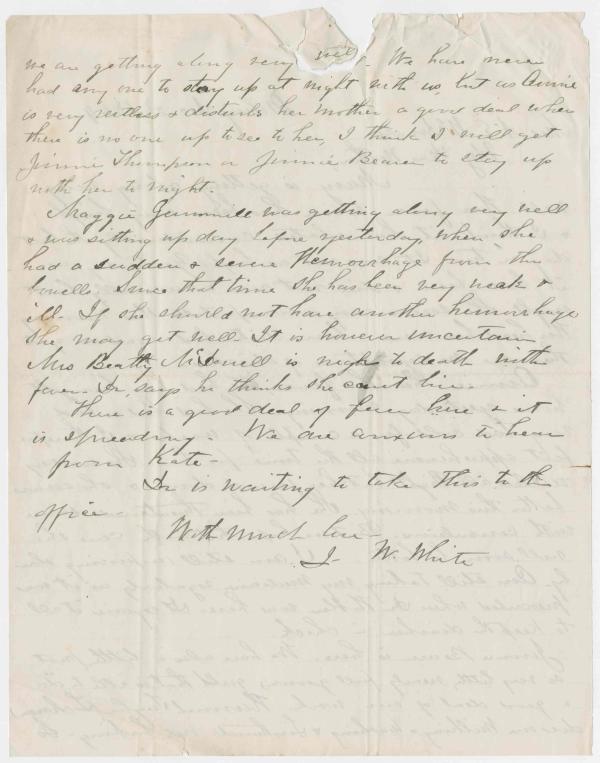 we are getting along very well - We have never
had any one to stay up at night with us, but as Annie
is very restless & disturbs her mother a good deal when
there is no one up to see to her, I think I will get
Jinnie Thompson or Jennie Bearer to stay up
with her to night.
Maggie Gummill was getting along very well
& was sitting up day before yesterday, when she
had a sudden & severe Hemorrhage from the
bowells. Since that time she has been very weak &
ill. If she should not have another hemorrhage
she may get well. It is however uncertain
Mrs Beatty is nigh to death with
fever. Dr. says he thinks she cant live.
There is a good deal of fever here & it
is spreading. We are anxious to hear
from Kate -
Dr is waiting to take this to the
office.
With much love -
J. W. White